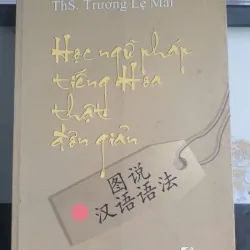 ThS. Trương Lệ Mai
Học ngữ pháp
tiếng Hoa
thật
đơn giản
图说
汉语语法